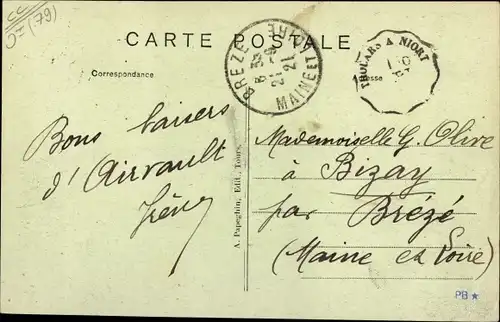 Dz (79)
CARTE POSTALE
Correspondance
BREZÉ
8 35
21
MAINE ET LOIRE
THOUARS A NIORT
Bons baisers
d'Airvault
Irène
A. Papeghin, Edit., Tours.
Mademoiselle G. Olive
à Bizay
par Brézé
(Maine et Loire)
PB★